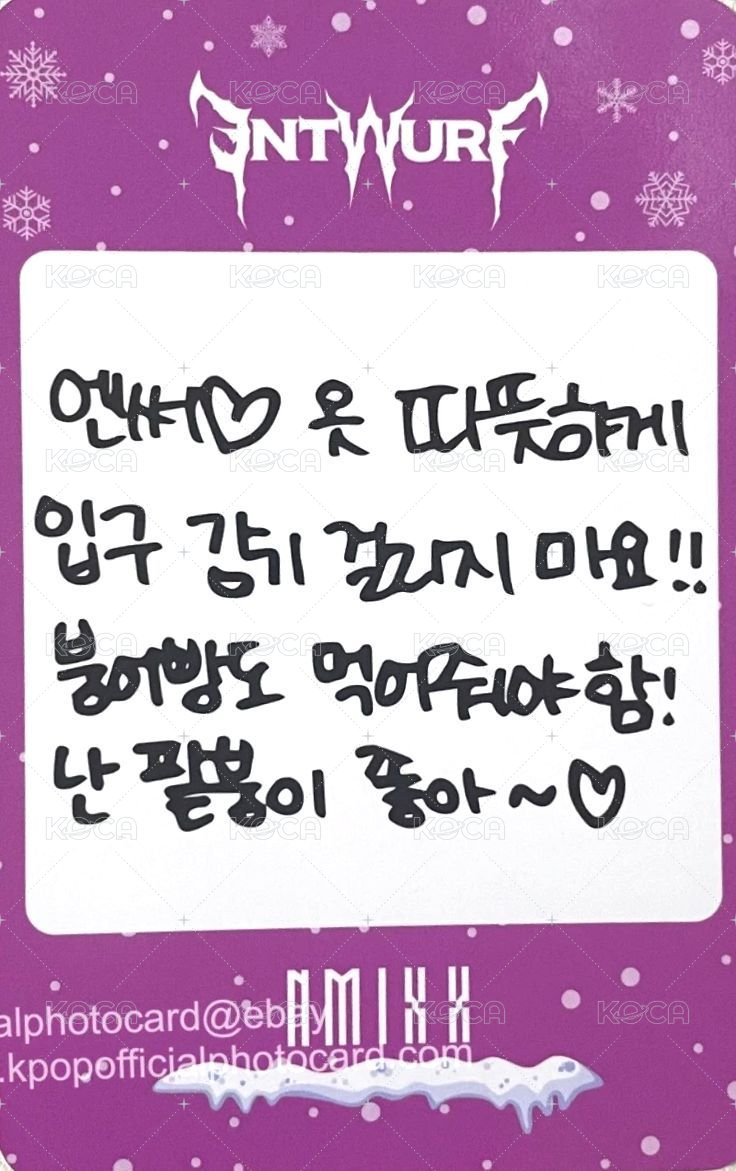 ENTWURF
엔써♡ 옷 따뜻하게
입구 감귀 걸리지 마요!!
붕어빵도 먹어줘야 함!
난 팥붕이 좋아~♡
NMIXX
alphotocard@ebay
.kpopofficialphotocard.com
KOCA